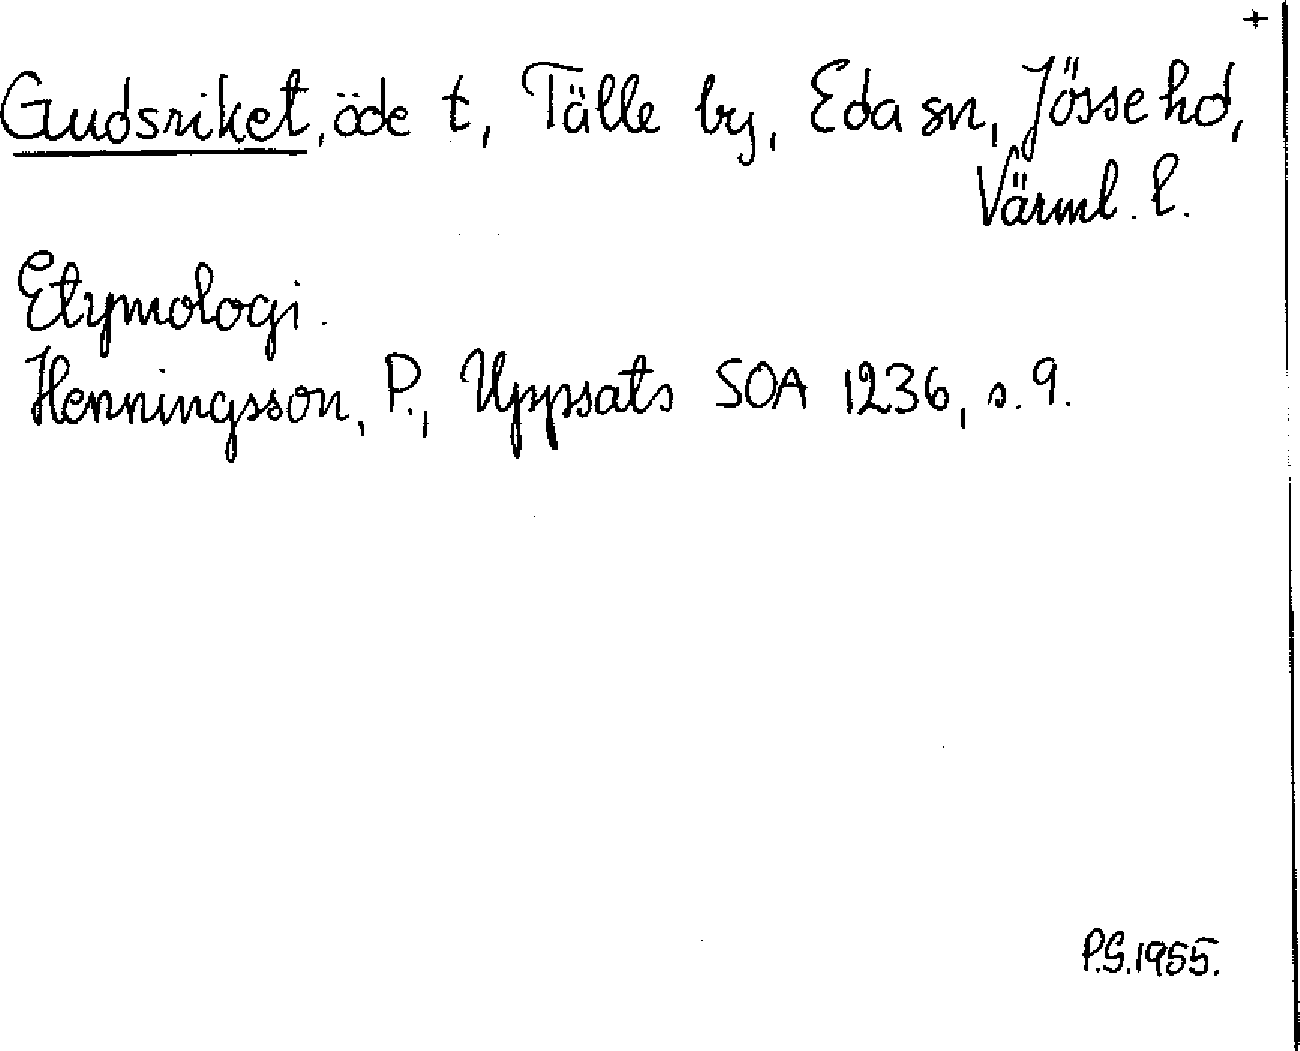 +
Gudsriket, öde t, Tälle by, Eda sn, Jösse hd,
Värml. l.
Etymologi.
Henningsson, P., Uppsats SOA 1236, s. 9.
P.G. 1955.